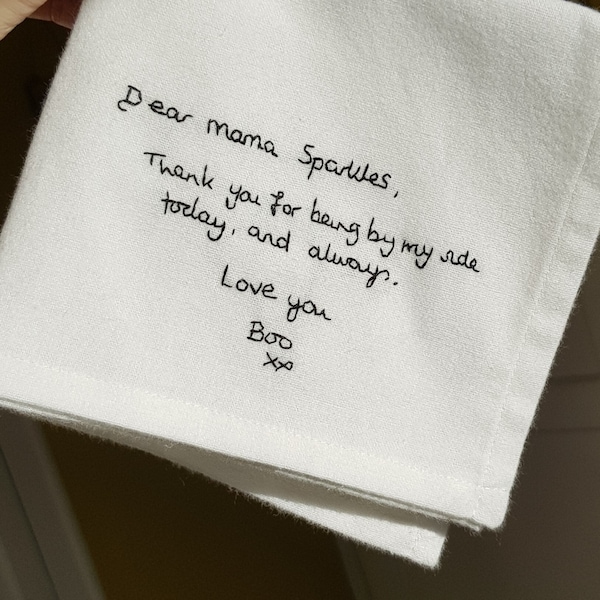 Dear mama Sparkles,
Thank you for being by my side
today, and always.
Love you
Boo
xx